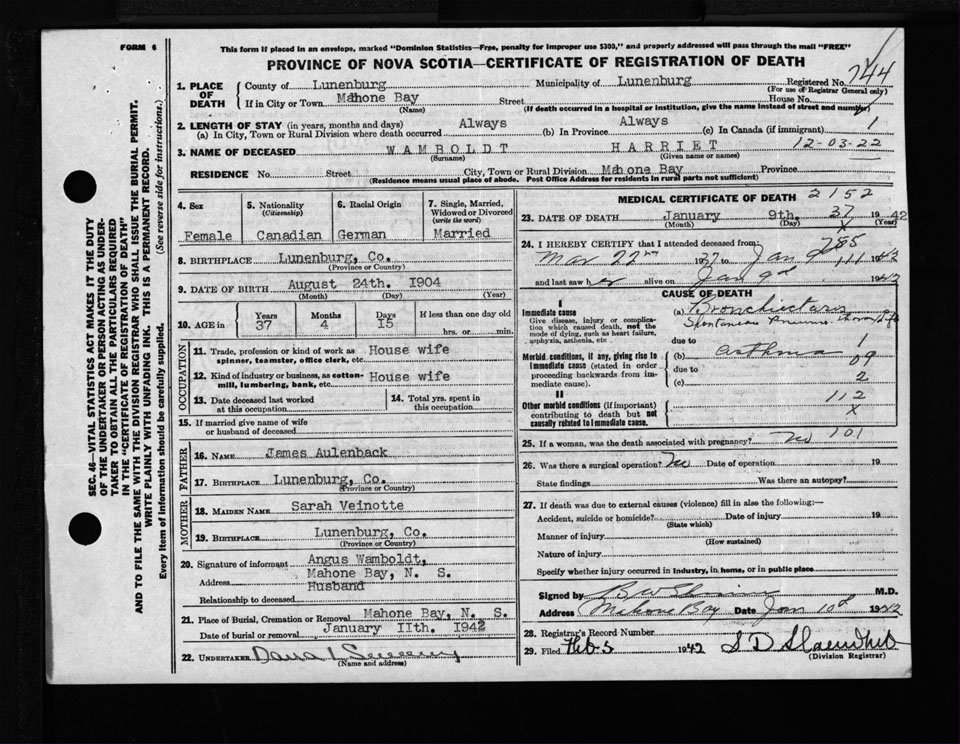 FORM 6
This form if placed in an envelope, marked "Dominion Statistics—Free, penalty for improper use $300," and properly addressed will pass through the mail "FREE"
PROVINCE OF NOVA SCOTIA—CERTIFICATE OF REGISTRATION OF DEATH
SEC. 46—VITAL STATISTICS ACT MAKES IT THE DUTY
OF THE UNDERTAKER OR PERSON ACTING AS UNDER-
TAKER TO OBTAIN ALL THE PARTICULARS REQUIRED
IN THE "CERTIFICATE OF REGISTRATION OF DEATH"
AND TO FILE THE SAME WITH THE DIVISION REGISTRAR WHO SHALL ISSUE THE BURIAL PERMIT.
WRITE PLAINLY WITH UNFADING INK. THIS IS A PERMANENT RECORD.
Every item of Information should be carefully supplied. (See reverse side for instructions.)
1. PLACE OF DEATH
County of Lunenburg Municipality of Lunenburg Registered No. 744
(For use of Registrar General only)
If in City or Town Mahone Bay Street House No.
(Name) (If death occurred in a hospital or institution, give the name instead of street and number)
2. LENGTH OF STAY (in years, months and days)
(a) In City, Town or Rural Division where death occurred Always (b) In Province Always (c) In Canada (if immigrant) 1
3. NAME OF DECEASED WAMBOLDT HARRIET 12-03-22
(Surname) (Given name or names)
RESIDENCE No. Street City, Town or Rural Division Mahone Bay Province
(Residence means usual place of abode. Post Office Address for residents in rural parts not sufficient)
4. Sex Female
5. Nationality (Citizenship) Canadian
6. Racial Origin German
7. Single, Married, Widowed or Divorced (write the word) Married
8. BIRTHPLACE Lunenburg, Co.
(Province or Country)
9. DATE OF BIRTH August 24th. 1904
(Month) (Day) (Year)
10. AGE in Years 37 Months 4 Days 15 If less than one day old hrs. or min.
OCCUPATION
11. Trade, profession or kind of work as spinner, teamster, office clerk, etc. House wife
12. Kind of industry or business, as cotton-mill, lumbering, bank, etc. House wife
13. Date deceased last worked at this occupation
14. Total yrs. spent in this occupation
15. If married give name of wife or husband of deceased
FATHER
16. NAME James Aulenback
17. BIRTHPLACE Lunenburg, Co.
(Province or Country)
MOTHER
18. MAIDEN NAME Sarah Veinotte
19. BIRTHPLACE Lunenburg, Co.
(Province or Country)
20. Signature of informant Angus Wamboldt,
Address Mahone Bay, N. S.
Relationship to deceased Husband
21. Place of Burial, Cremation or Removal Mahone Bay, N. S.
Date of burial or removal January 11th. 1942
22. UNDERTAKER
(Name and address)
MEDICAL CERTIFICATE OF DEATH 2152
23. DATE OF DEATH January 9th. 37 1942
(Month) (Day) X (Year)
24. I HEREBY CERTIFY that I attended deceased from: 285
Mar 22nd 1937 to Jan 9 111 1942
and last saw her alive on Jan 9d 1942
CAUSE OF DEATH
I
Immediate cause
Give disease, injury or complication which caused death, not the mode of dying, such as heart failure, asphyxia, asthenia, etc
(a)
due to 1
Morbid conditions, if any, giving rise to immediate cause (stated in order proceeding backwards from immediate cause).
(b) asthma 09
due to 2
(c)
II 112
Other morbid conditions (if important) contributing to death but not causally related to immediate cause. X
25. If a woman, was the death associated with pregnancy? No 101
26. Was there a surgical operation? No Date of operation 19
State findings Was there an autopsy?
27. If death was due to external causes (violence) fill in also the following:—
Accident, suicide or homicide? Date of injury 19
(State which)
Manner of injury
(How sustained)
Nature of injury
Specify whether injury occurred in industry, in home, or in public place
Signed by M.D.
Address Mahone Bay Date Jan 10d 1942
28. Registrar's Record Number
29. Filed Feb 5 1942
(Division Registrar)